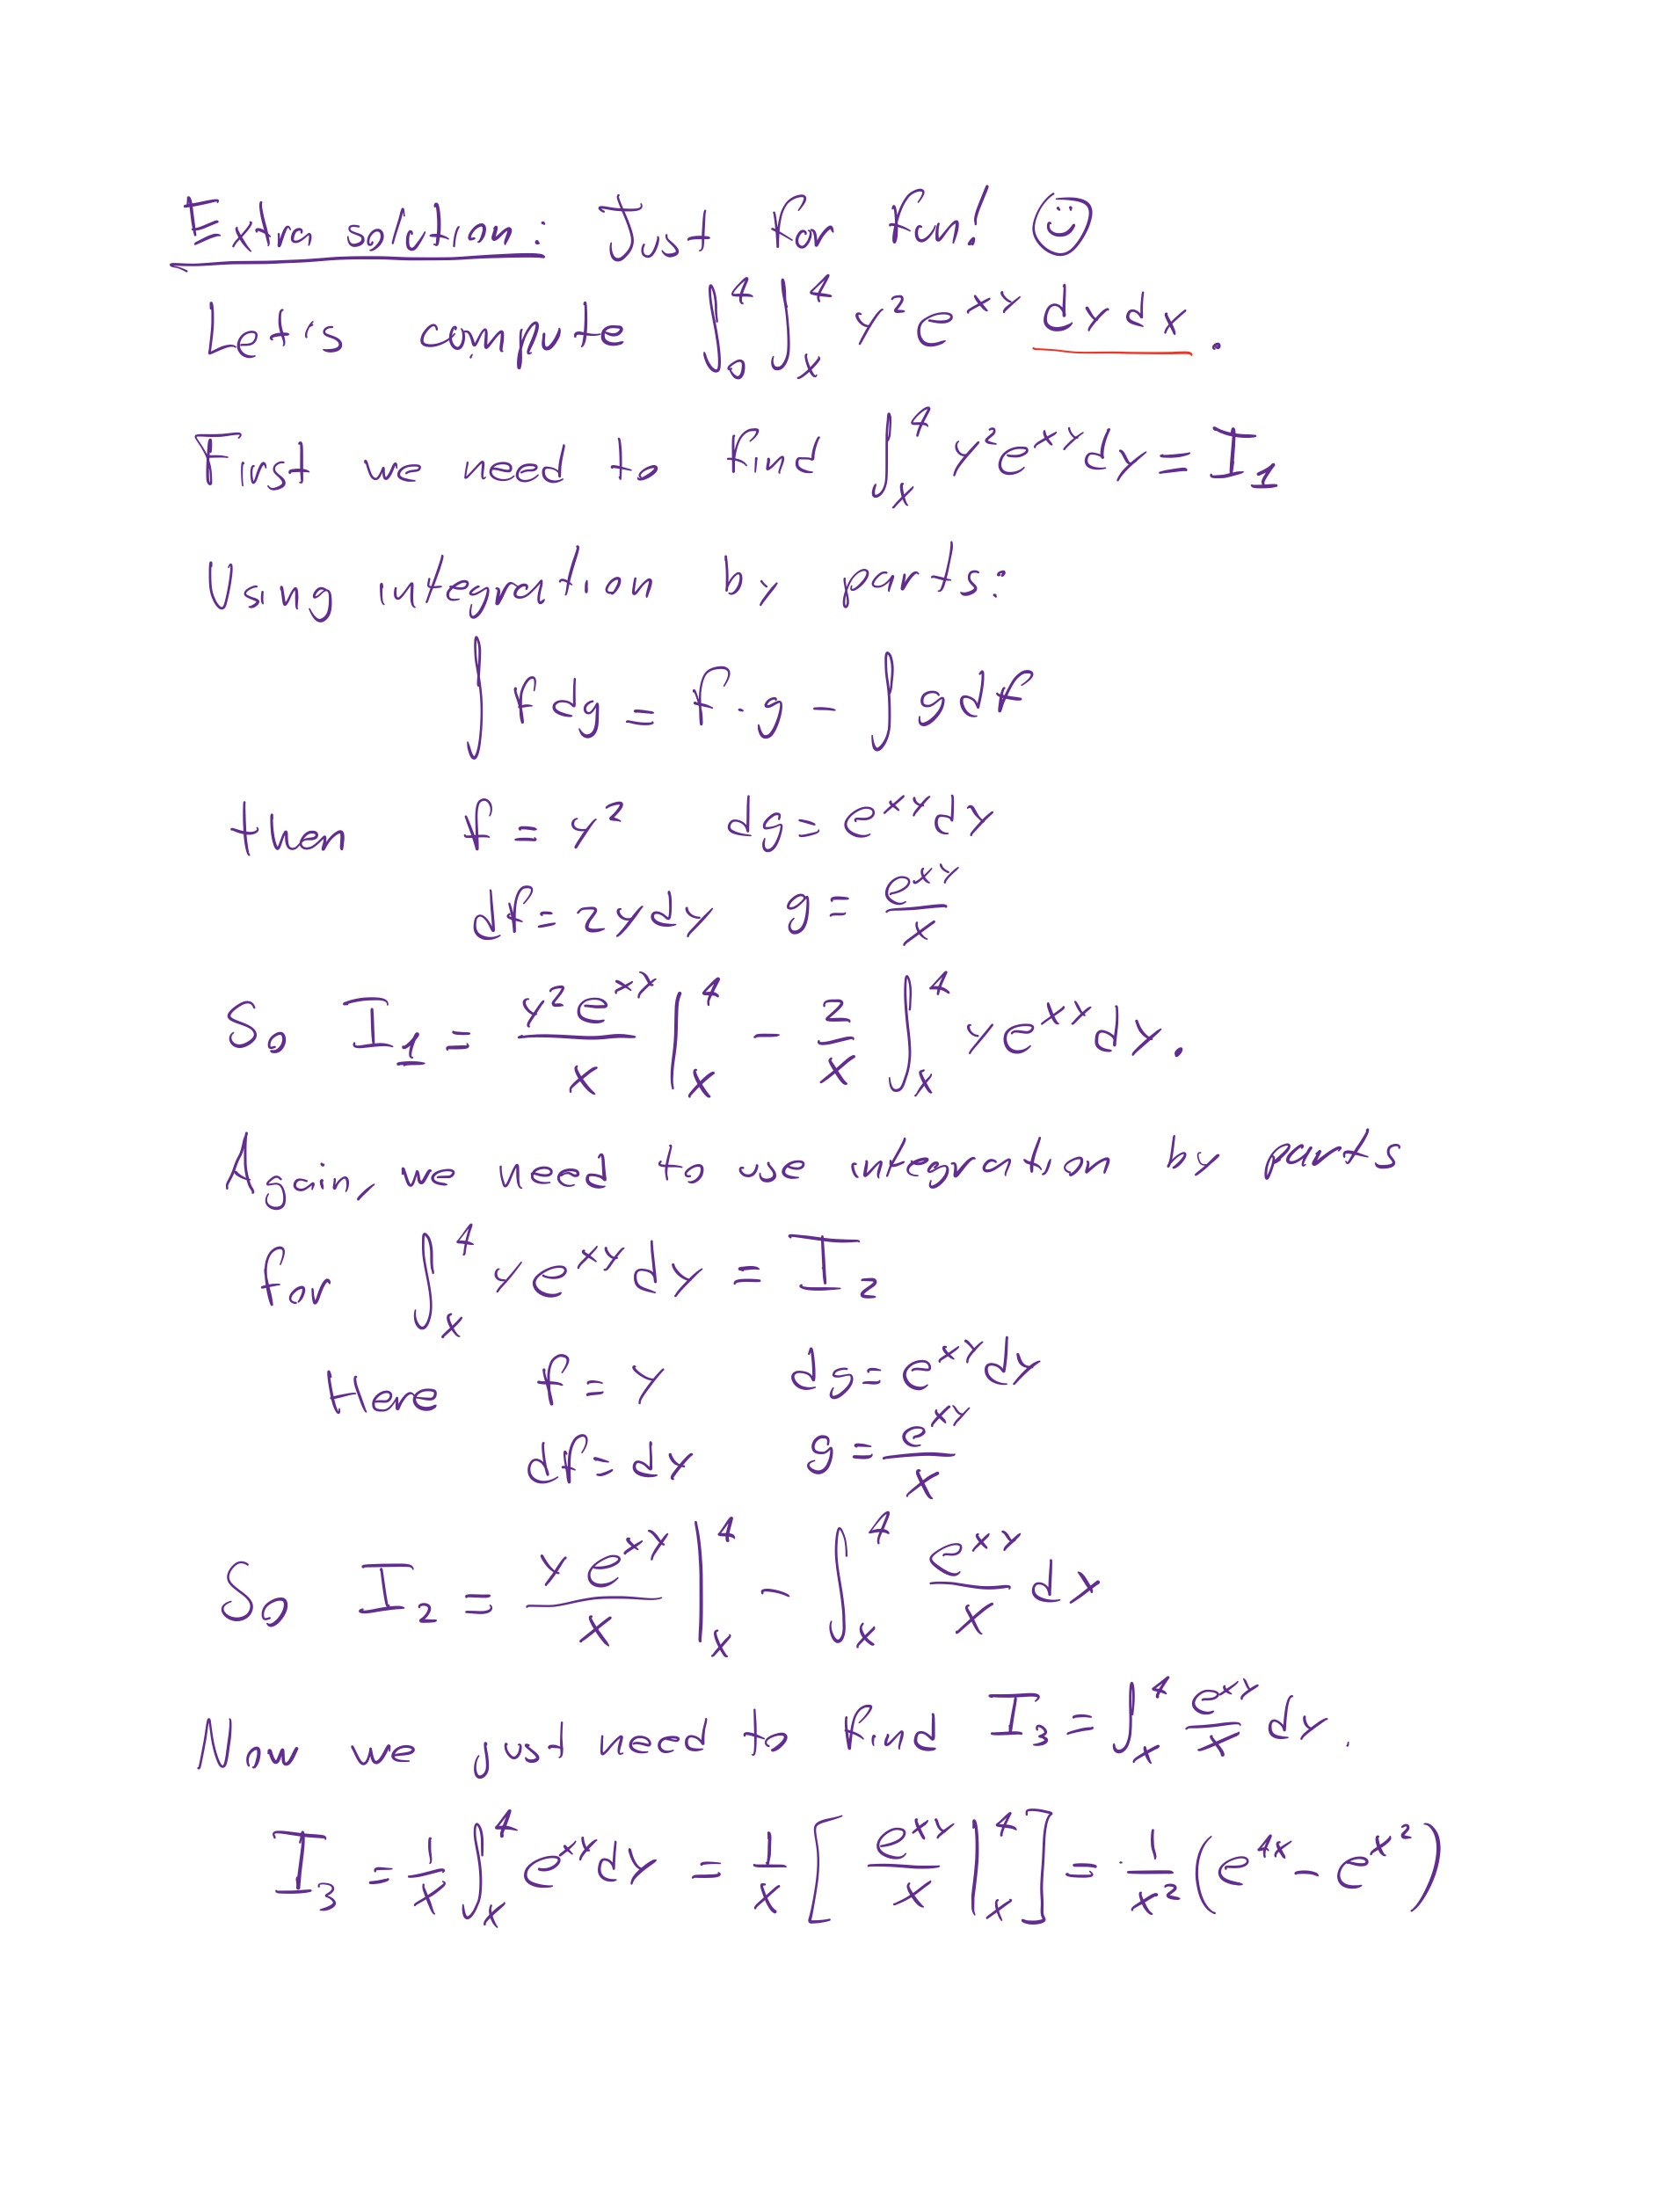 Extra solution: Just for fun! ☺
Let's compute ∫₀⁴ ∫ₓ⁴ y² e^{xy} dy dx.
First we need to find ∫ₓ⁴ y² e^{xy} dy = I₁
Using integration by parts:
∫ f dg = f · g − ∫ g df
then f = y² dg = e^{xy} dy
df = 2y dy g = e^{xy}/x
So I₁ = y² e^{xy}/x |ₓ⁴ − 2/x ∫ₓ⁴ y e^{xy} dy.
Again, we need to use integration by parts
for ∫ₓ⁴ y e^{xy} dy = I₂
Here f = y dg = e^{xy} dy
df = dy g = e^{xy}/x
So I₂ = y e^{xy}/x |ₓ⁴ − ∫ₓ⁴ e^{xy}/x dx
Now we just need to find I₃ = ∫ₓ⁴ e^{xy}/x dy.
I₃ = 1/x ∫ₓ⁴ e^{xy} dy = 1/x [ e^{xy}/x |ₓ⁴ ] = 1/x² (e^{4x} − e^{x²})